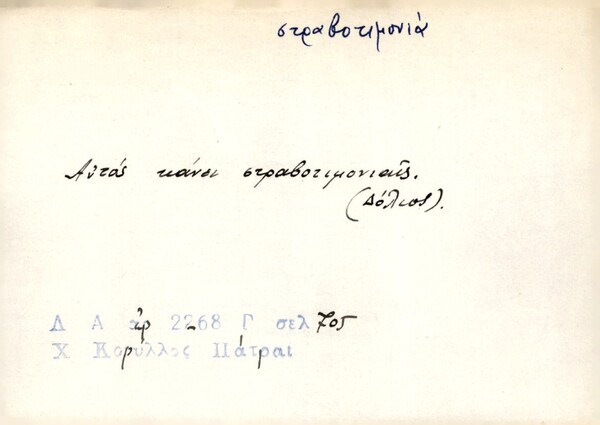 στραβοτιμονιά
Αὐτός κάνει στραβοτιμονιαῖς.
(Δόλιος).
Λ Α ἀρ 2268 Γ σελ 705
Χ Κορύλλος Πάτραι